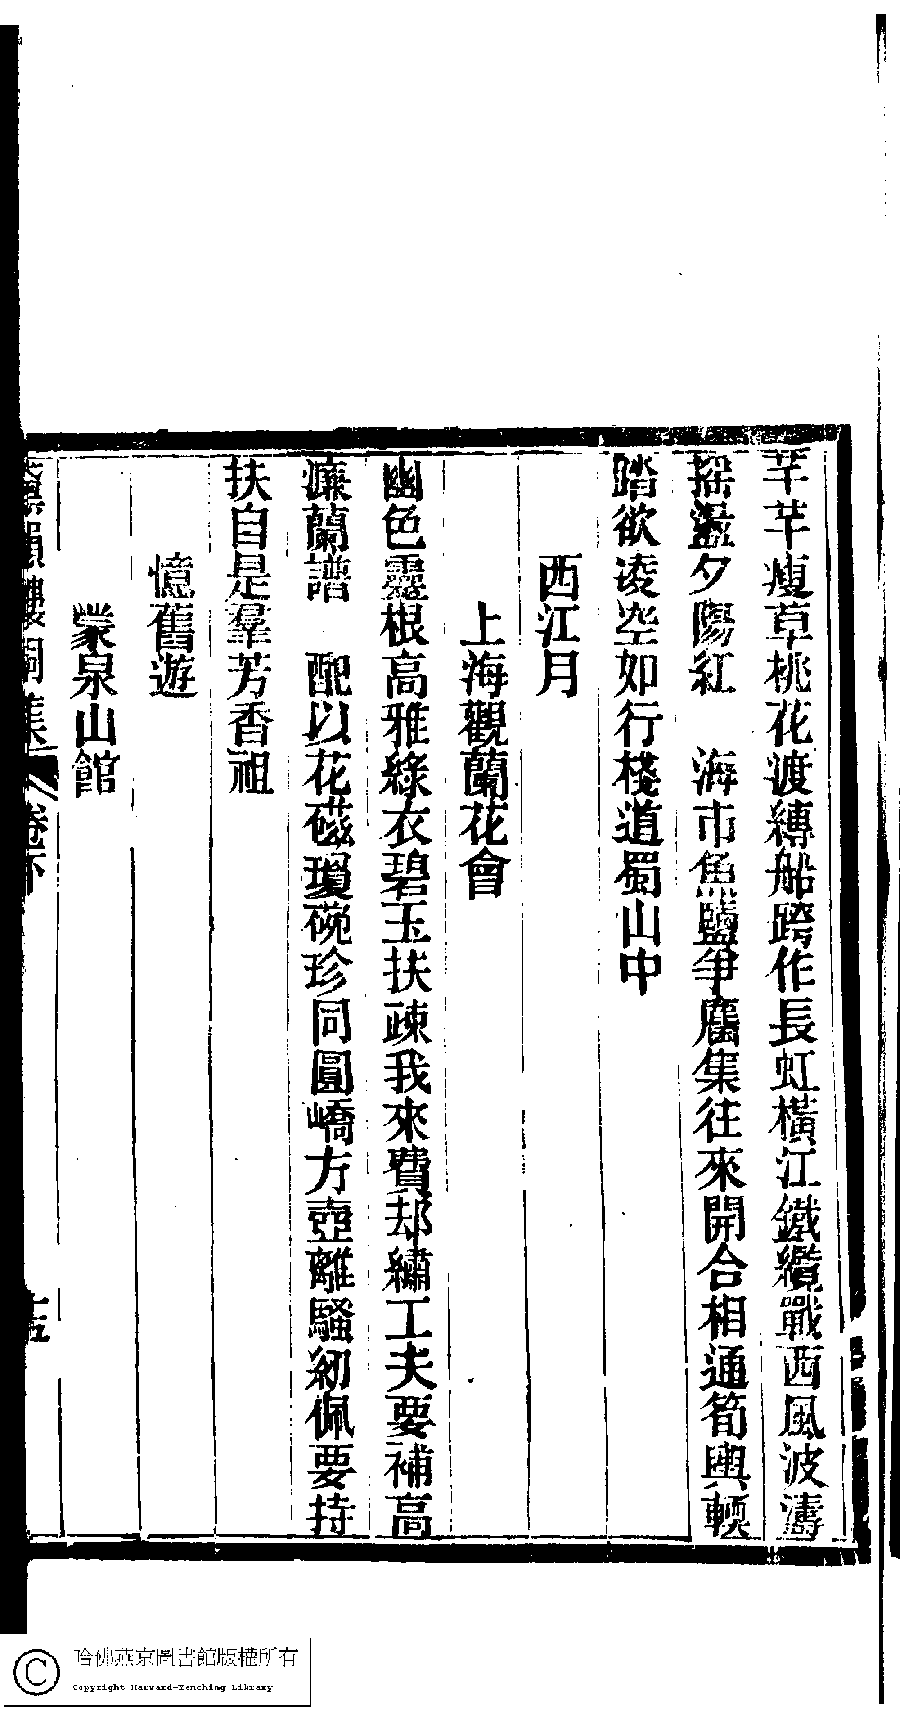 芊芊瘦草桃花渡縳船跨作長虹橫江鐵纜戰西風波濤
搖盪夕陽紅　海市魚鹽爭廛集往來開合相通筍輿輭
踏欲凌空如行棧道蜀山中
西江月
上海觀蘭花會
幽色靈根高雅綠衣碧玉扶疎我來費却繡工夫要補高
濂蘭譜　配以花磁瓊碗珍同圓嶠方壺離騷紉佩要持
扶自是羣芳香祖
憶舊遊
蒙泉山館
韻樓詞集 卷下 十五
哈佛燕京圖書館版權所有
Copyright Harvard-Yenching Library